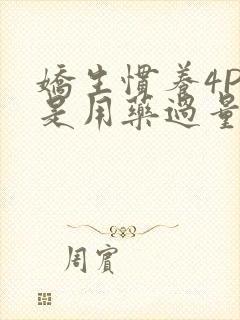 嬌生慣養4P
是用藥過量
周賓